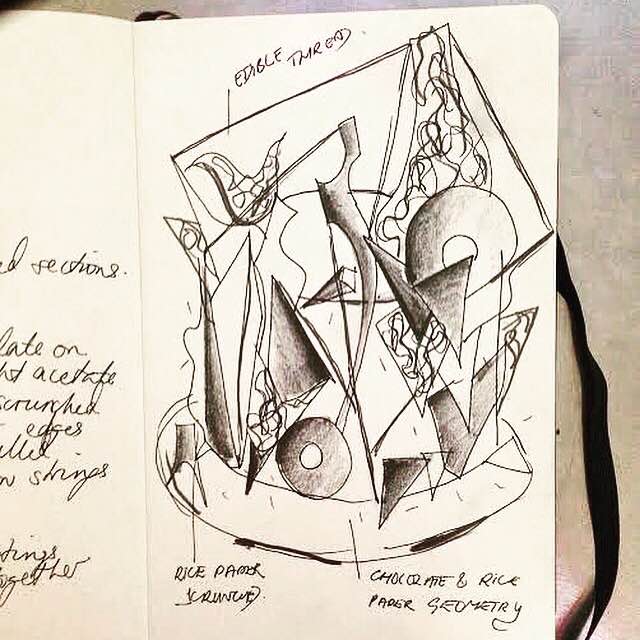 ed sections.
late on
ht acetate
scrunched
edges
on strings
together
EDIBLE THREAD
RICE PAPER
SCRUNCHED.
CHOCOLATE & RICE
PAPER GEOMETRY